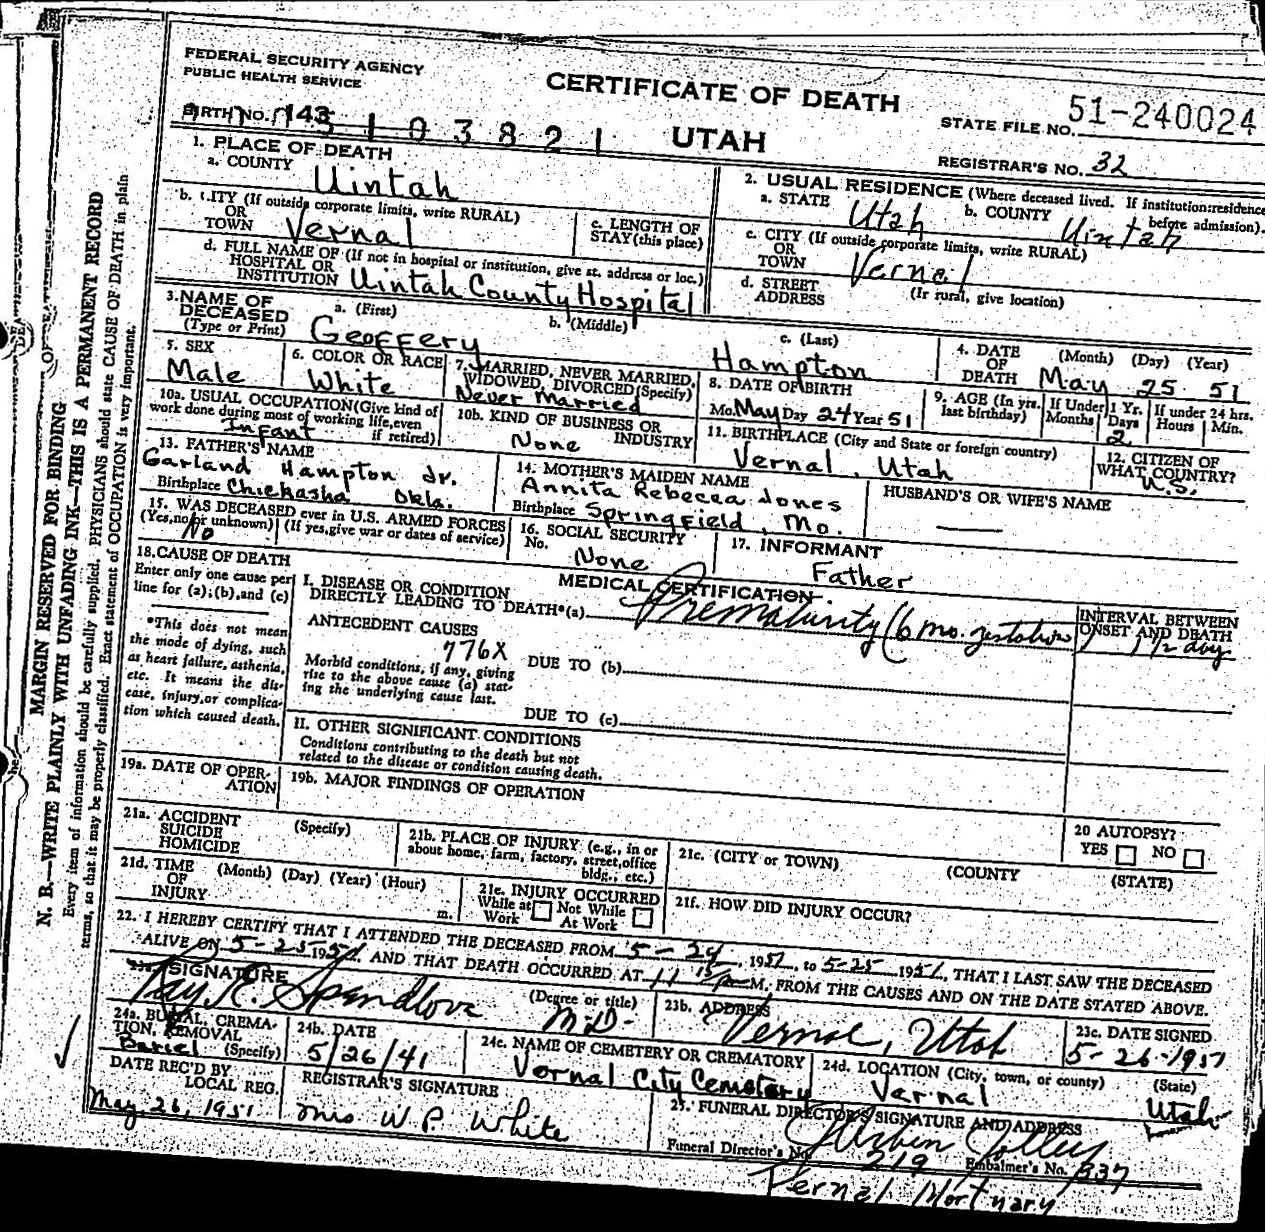 FEDERAL SECURITY AGENCY
PUBLIC HEALTH SERVICE
CERTIFICATE OF DEATH
UTAH
STATE FILE NO. 51-240024
BIRTH NO. 143 5103821
REGISTRAR'S NO. 32
1. PLACE OF DEATH
a. COUNTY Uintah
b. CITY (If outside corporate limits, write RURAL)
OR
TOWN Vernal
c. LENGTH OF
STAY (this place)
d. FULL NAME OF (If not in hospital or institution, give st. address or loc.)
HOSPITAL OR
INSTITUTION Uintah County Hospital
2. USUAL RESIDENCE (Where deceased lived. If institution: residence
before admission).
a. STATE Utah b. COUNTY Uintah
c. CITY (If outside corporate limits, write RURAL)
OR
TOWN Vernal
d. STREET
ADDRESS (If rural, give location)
3. NAME OF
DECEASED
(Type or Print)
a. (First) Geoffery
b. (Middle)
c. (Last) Hampton
4. DATE
OF
DEATH
(Month) (Day) (Year)
May 25 51
5. SEX
Male
6. COLOR OR RACE
White
7. MARRIED, NEVER MARRIED,
WIDOWED, DIVORCED (Specify)
Never Married
8. DATE OF BIRTH
Mo. May Day 24 Year 51
9. AGE (In yrs.
last birthday)
If Under 1 Yr.
Months Days
2
If under 24 hrs.
Hours Min.
10a. USUAL OCCUPATION (Give kind of
work done during most of working life, even
if retired)
Infant
10b. KIND OF BUSINESS OR
INDUSTRY
None
11. BIRTHPLACE (City and State or foreign country)
Vernal, Utah
12. CITIZEN OF
WHAT COUNTRY?
U.S.
13. FATHER'S NAME
Garland Hampton Jr.
Birthplace Chickasha Okla.
14. MOTHER'S MAIDEN NAME
Annita Rebecca Jones
Birthplace Springfield, Mo.
HUSBAND'S OR WIFE'S NAME
15. WAS DECEASED ever in U.S. ARMED FORCES
(Yes, no or unknown) (If yes, give war or dates of service)
No
16. SOCIAL SECURITY
No. None
17. INFORMANT
Father
18. CAUSE OF DEATH
Enter only one cause per
line for (a), (b), and (c)
*This does not mean
the mode of dying, such
as heart failure, asthenia,
etc. It means the dis-
ease, injury, or complica-
tion which caused death.
MEDICAL CERTIFICATION
I. DISEASE OR CONDITION
DIRECTLY LEADING TO DEATH*(a) Prematurity (6 mo. gestation)
INTERVAL BETWEEN
ONSET AND DEATH
1 1/2 day
ANTECEDENT CAUSES
776X
Morbid conditions, if any, giving
rise to the above cause (a) stat-
ing the underlying cause last.
DUE TO (b)
DUE TO (c)
II. OTHER SIGNIFICANT CONDITIONS
Conditions contributing to the death but not
related to the disease or condition causing death.
19a. DATE OF OPER-
ATION
19b. MAJOR FINDINGS OF OPERATION
20 AUTOPSY?
YES NO
21a. ACCIDENT
SUICIDE
HOMICIDE
(Specify)
21b. PLACE OF INJURY (e.g., in or
about home, farm, factory, street, office
bldg., etc.)
21c. (CITY or TOWN) (COUNTY (STATE)
21d. TIME
OF
INJURY
(Month) (Day) (Year) (Hour)
m.
21e. INJURY OCCURRED
While at Work Not While At Work
21f. HOW DID INJURY OCCUR?
22. I HEREBY CERTIFY THAT I ATTENDED THE DECEASED FROM 5-24, 1951, to 5-25 1951, THAT I LAST SAW THE DECEASED
ALIVE ON 5-25 1951, AND THAT DEATH OCCURRED AT 11 15 P M. FROM THE CAUSES AND ON THE DATE STATED ABOVE.
23a. SIGNATURE
Ray E. Spendlove
(Degree or title)
M.D.
23b. ADDRESS
Vernal, Utah
23c. DATE SIGNED
5-26-1951
24a. BURIAL, CREMA-
TION, REMOVAL
(Specify)
Buriel
24b. DATE
5/26/41
24c. NAME OF CEMETERY OR CREMATORY
Vernal City Cemetery
24d. LOCATION (City, town, or county) (State)
Vernal Utah
DATE REC'D BY
LOCAL REG.
May 26, 1951
REGISTRAR'S SIGNATURE
Mrs W. P. White
25. FUNERAL DIRECTOR'S SIGNATURE AND ADDRESS
Jolley
Funeral Director's No. 219 Embalmer's No. 337
Vernal Mortuary
MARGIN RESERVED FOR BINDING
N. B.—WRITE PLAINLY WITH UNFADING INK—THIS IS A PERMANENT RECORD
Every item of information should be carefully supplied. PHYSICIANS should state CAUSE OF DEATH in plain
terms, so that it may be properly classified. Exact statement of OCCUPATION is very important.